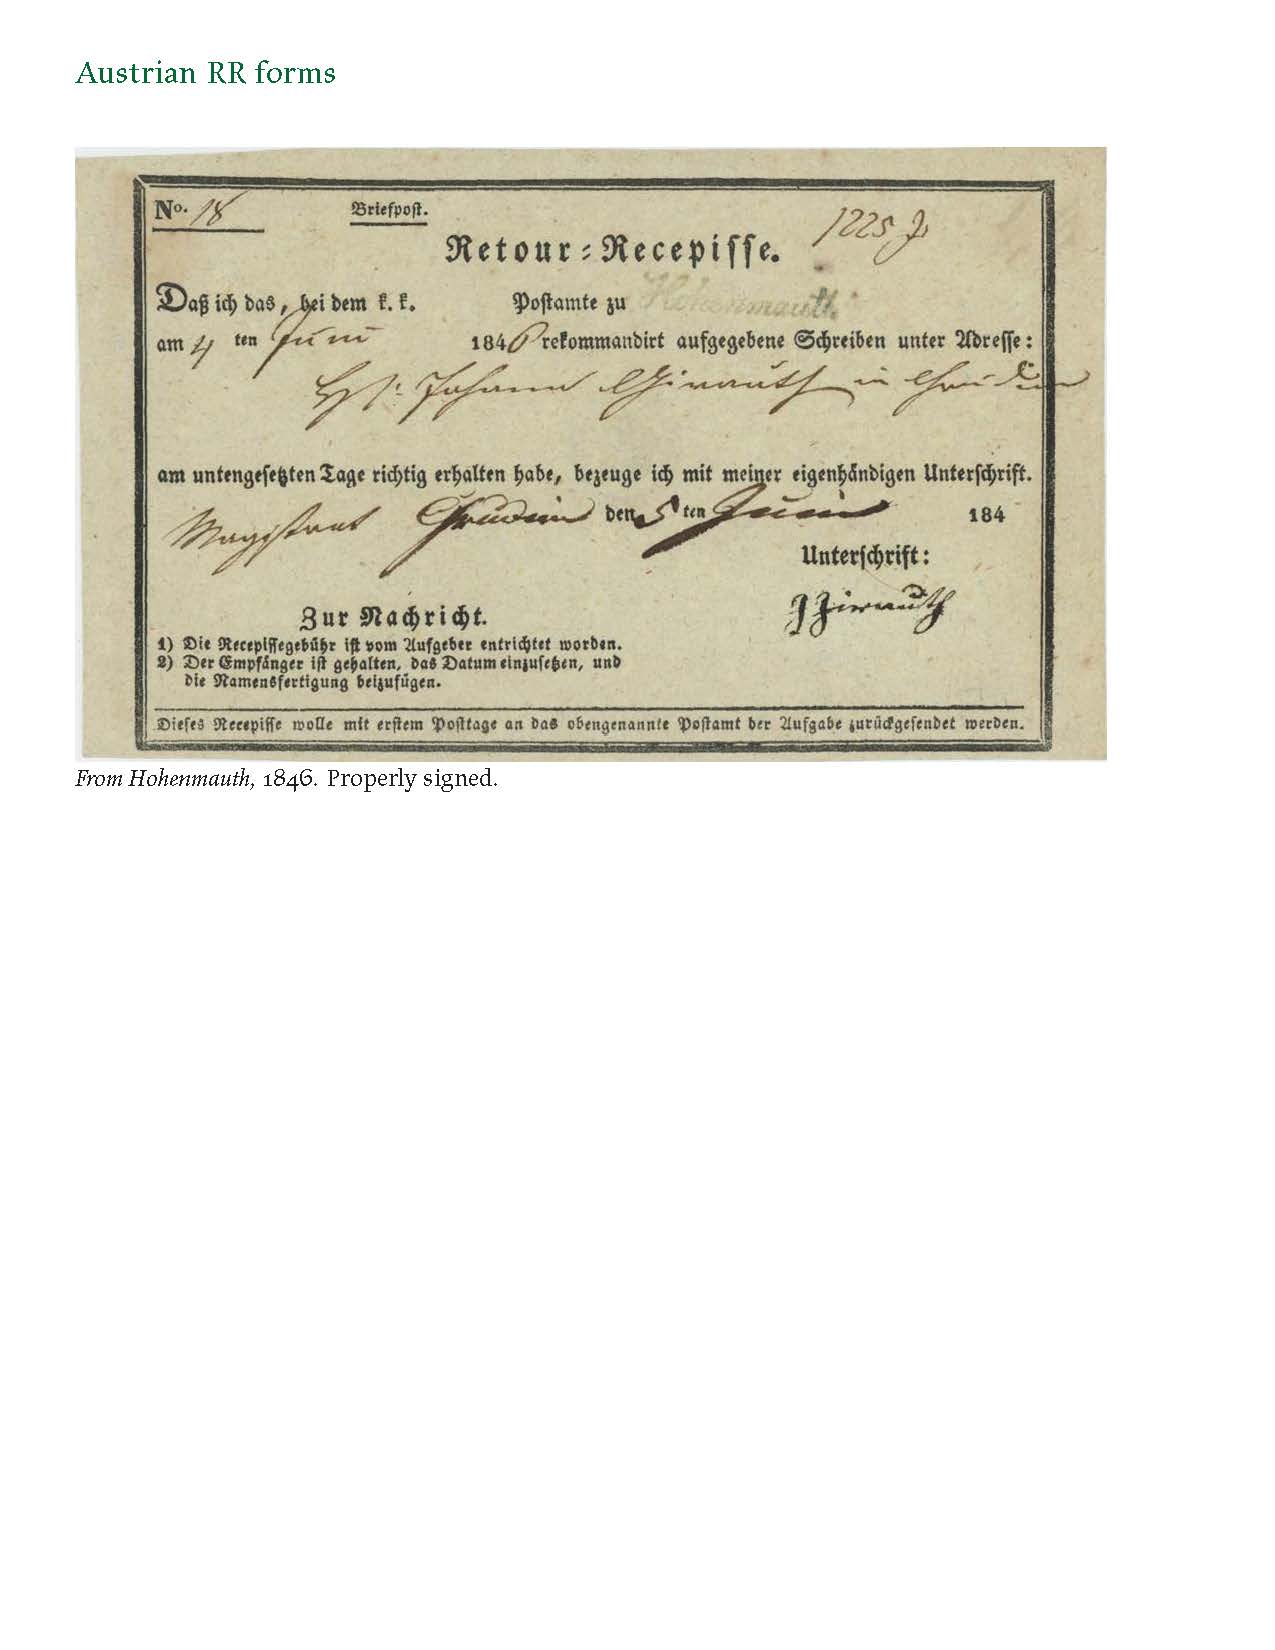 Austrian RR forms
No. 18 Briefpost. 1225
Retour-Recepisse.
Daß ich das, bei dem k. k. Postamte zu Hohenmauth.
am 4 ten Juni 1846 rekommandirt aufgegebene Schreiben unter Adresse:
Johann in Chrudim
am untengesetzten Tage richtig erhalten habe, bezeuge ich mit meiner eigenhändigen Unterschrift.
Magistrat Chrudim den 5 ten Juni 184
Unterschrift:
Zur Nachricht.
1) Die Recepissegebühr ist vom Aufgeber entrichtet worden.
2) Der Empfänger ist gehalten, das Datum einzusetzen, und
die Namensfertigung beizufügen.
Dieses Recepisse wolle mit erstem Posttage an das obengenannte Postamt der Aufgabe zurückgesendet werden.
From Hohenmauth, 1846. Properly signed.